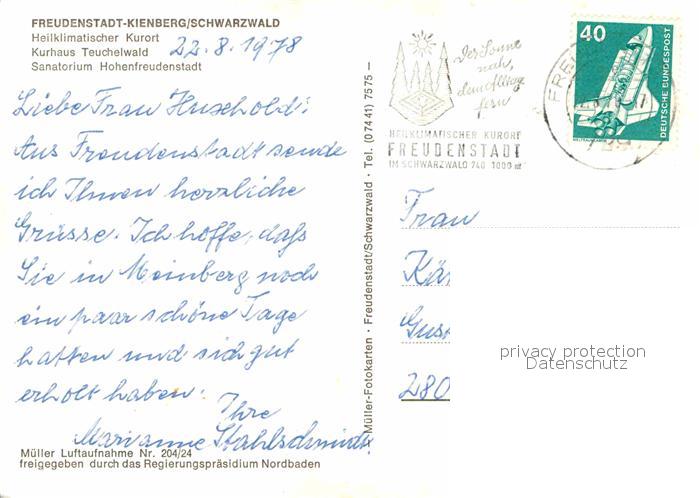 FREUDENSTADT-KIENBERG/SCHWARZWALD
Heilklimatischer Kurort
Kurhaus Teuchelwald
Sanatorium Hohenfreudenstadt
22.8.1978
Liebe Frau Huxhold!
Aus Freudenstadt sende
ich Ihnen herzliche
Grüsse. Ich hoffe, daß
Sie in Meinberg noch
ein paar schöne Tage
hatten und sich gut
erholt haben.
Ihre
Marianne Stahlschmidt
Müller Luftaufnahme Nr. 204/24
freigegeben durch das Regierungspräsidium Nordbaden
Müller-Fotokarten · Freudenstadt/Schwarzwald · Tel. (0 74 41) 75 75 —
Der Sonne
nah,
dem Alltag
fern
HEILKLIMATISCHER KURORT
FREUDENSTADT
IM SCHWARZWALD 740-1000 m
40
DEUTSCHE BUNDESPOST
Frau
Kä
Gus
280
privacy protection
Datenschutz